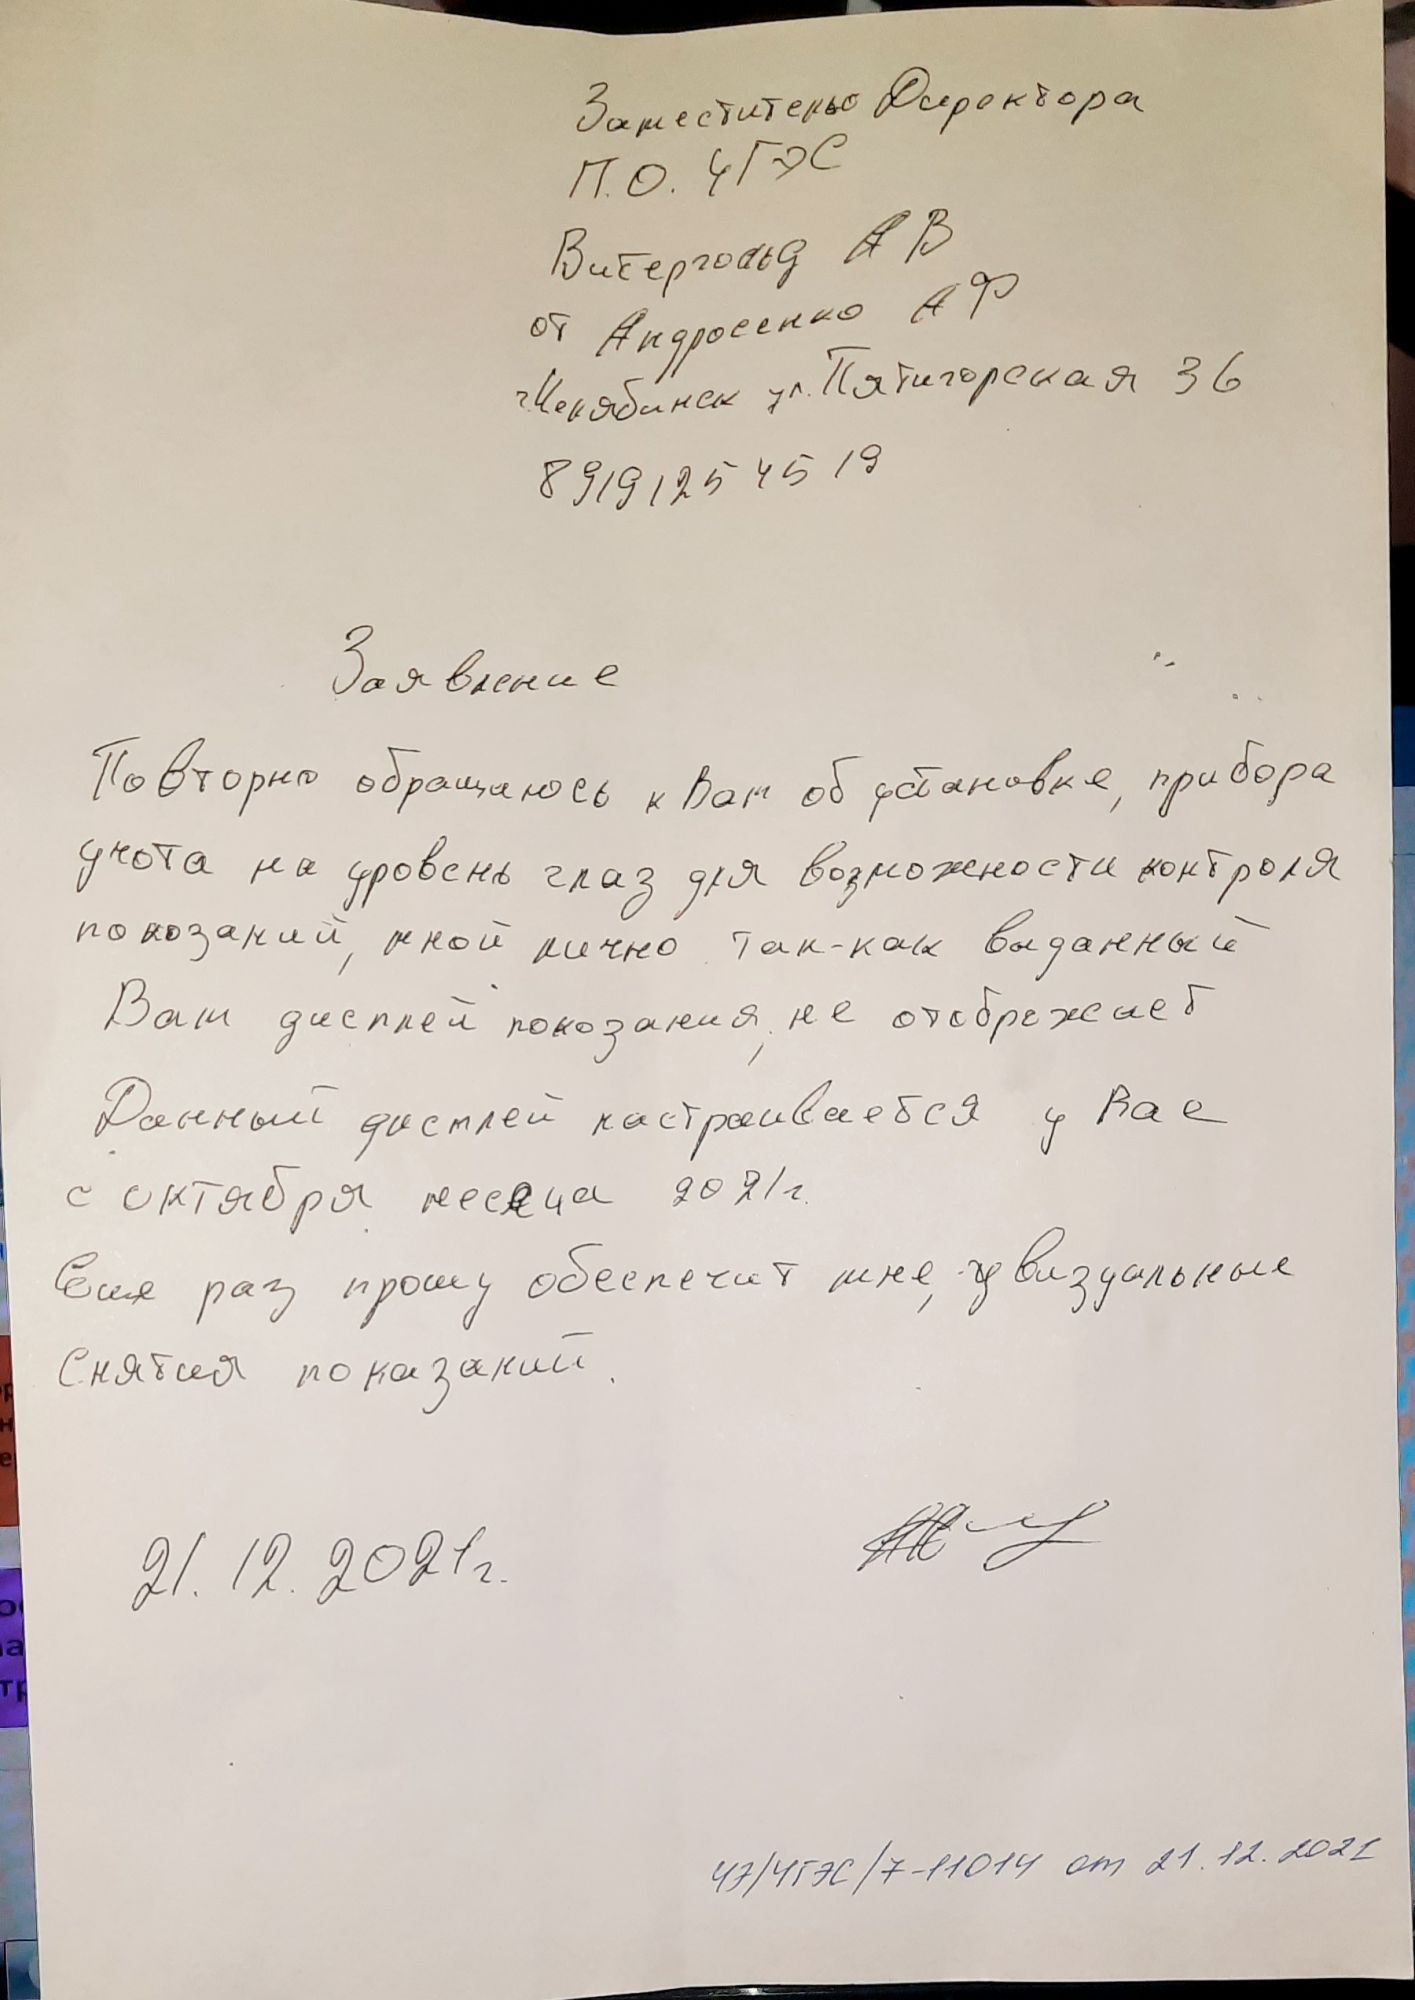 Заместителю Директора
П.О. ЧГЭС
Витергольд А В
от Андросенко А Ф
г.Челябинск ул.Пятигорская 36
89191254519
Заявление
Повторно обращаюсь к Вам об установке, прибора
учота на уровень глаз для возможности контроля
покозаний, мной лично так-как выданный
Вам дисплей покозания, не отображает
Данный дисплей настраивается у Вас
с октября месяца 2021г.
Еще раз прошу обеспечит мне, визуальные
Снятия показаний.
21.12.2021г.
ЧЭ/ЧГЭС/7-11014 от 21.12.2021